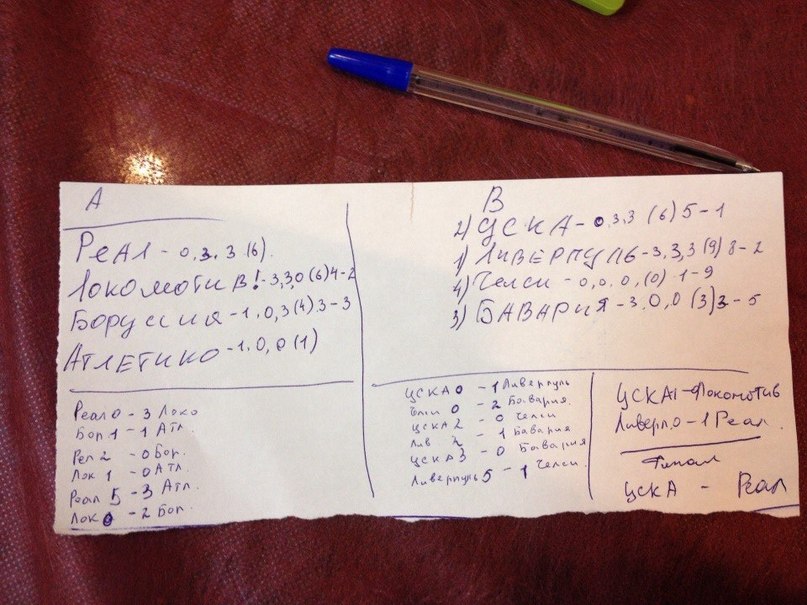 А
Реал - 0, 3, 3 (6)
Локомотив! - 3,3,0 (6) 4-2
Боруссия - 1, 0, 3 (4) 3-3
Атлетико - 1, 0, 0 (1)
Реал 0 - 3 Локо
Бор 1 - 1 Атл.
Реал 2 - 0 Бор.
Лок 1 - 0 Атл.
Реал 5 - 3 Атл.
Лок 0 - 2 Бор.
В
2) ЦСКА - 0, 3, 3 (6) 5-1
1) Ливерпуль - 3, 3, 3 (9) 8-2
4) Челси - 0, 0, 0, (0) 1-9
3) Бавария - 3, 0, 0 (3) 3-5
ЦСКА 0 - 1 Ливерпуль
Челси 0 - 2 Бавария.
ЦСКА 2 - 0 Челси
Лив 2 - 1 Бавария
ЦСКА 3 - 0 Бавария
Ливерпуль 5 - 1 Челси.
ЦСКА 1 - 0 Локомотив
Ливерп. 0 - 1 Реал.
Финал
ЦСКА - Реал